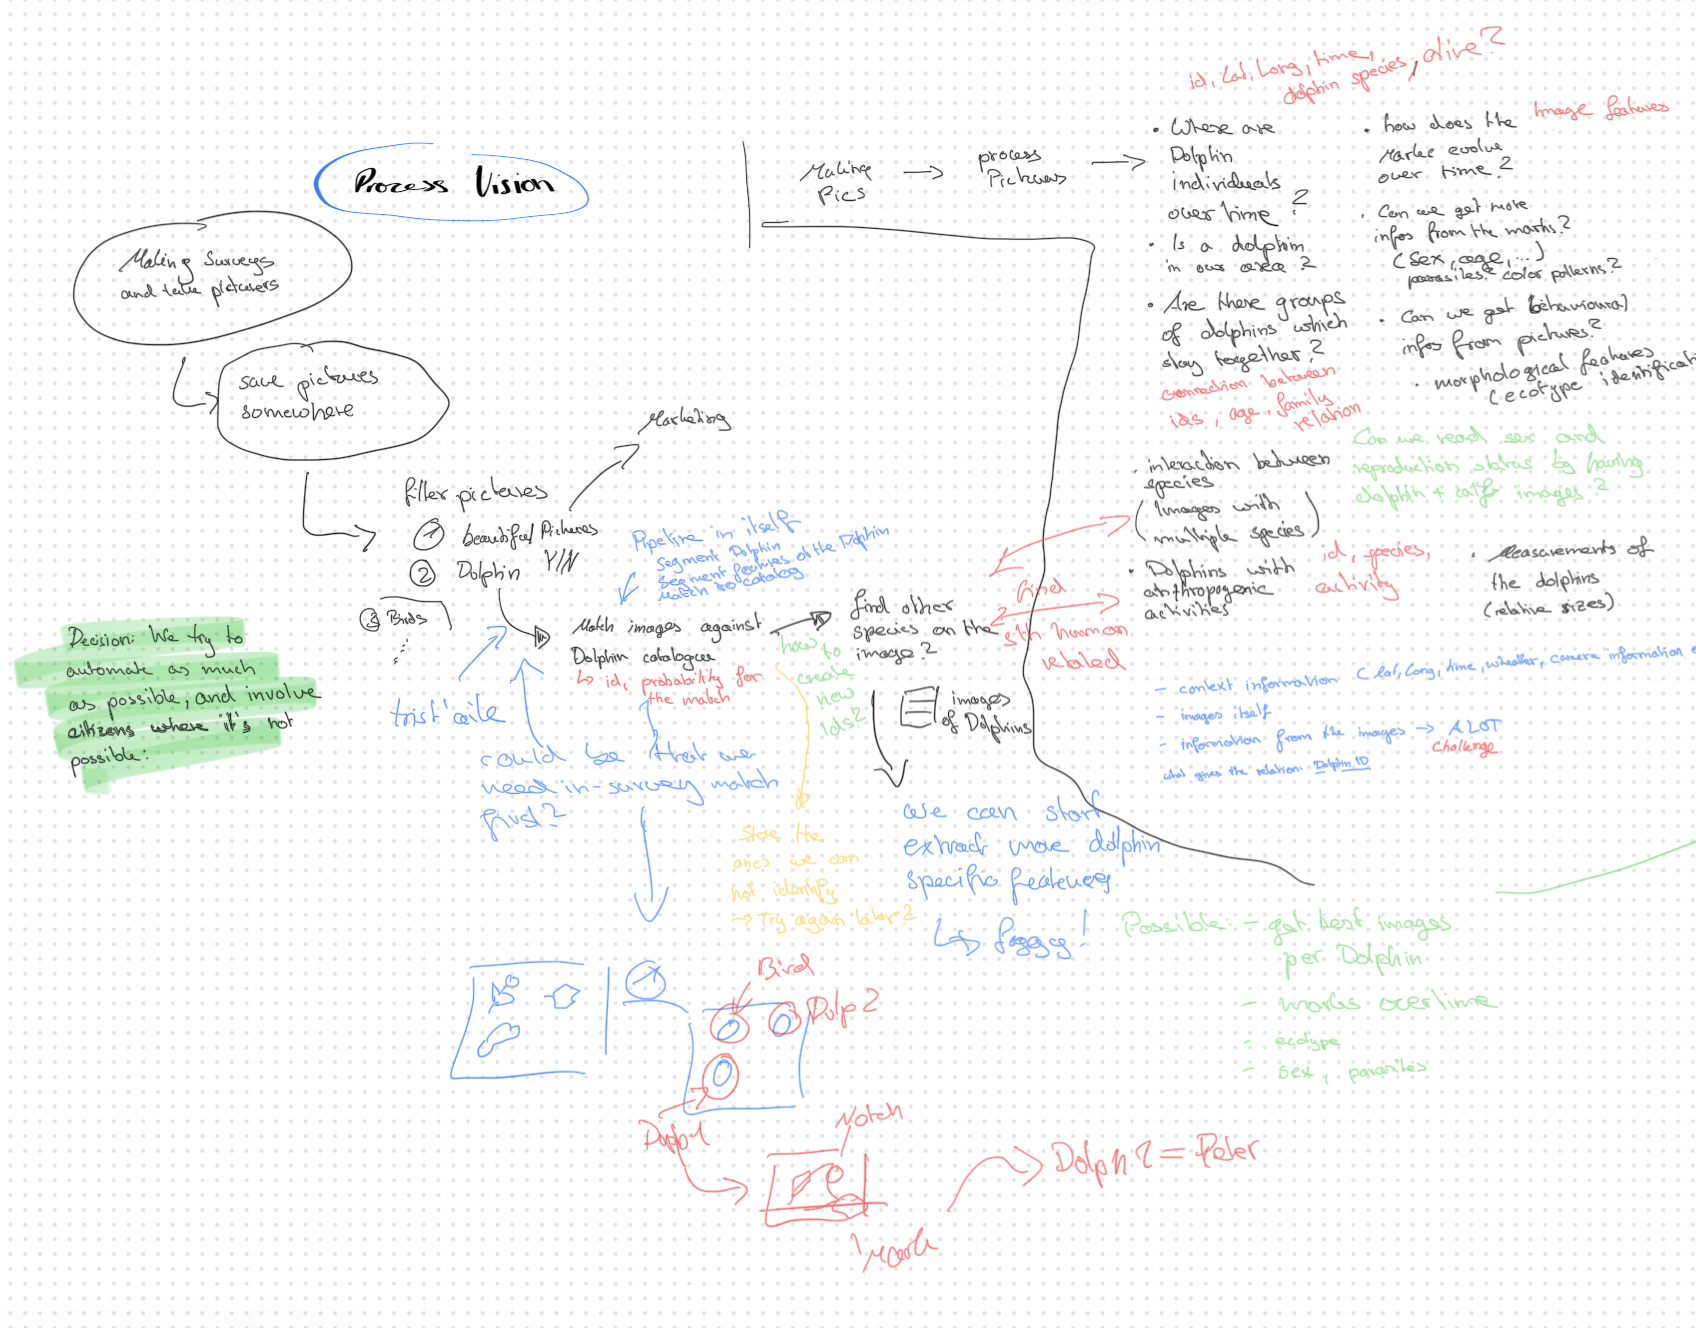 Process Vision
Making Surveys
and take picturers
save pictures
somewhere
filter pictures
1 beautiful Pictures
2 Dolphin Y/N
3 Birds
Marketing
Decision: We try to
automate as much
as possible, and involve
citizens where it's not
possible:
Pipeline in itself
Segment Dolphin
Segment features of the Dolphin
Match to catalog
Match images against
Dolphin catalogue
↳ id, probability for
the match
how to
create
new
Ids?
could be that we
need in-survey match
first?
Store the
ones we can
not identify
→ Try again later?
find other
species on the
image?
images
of Dolphins
find
sth human
related
we can start
extract more dolphin
specific features
Bird
Dolp 2
Notch
Dolph 2 = Peter
Making
Pics
→
process
Pictures
→
id, Lat, Long, time,
dolphin species, alive?
• Where are
Dolphin
individuals
over time?
• Is a dolphin
in our area?
• Are there groups
of dolphins which
stay together?
connection between
ids, age, family
relation
• interaction between
species
(Images with
multiple species)
• Dolphins with
anthropogenic
activities
id, species,
activity
• how does the
evolve
over time?
Image features
• Can we get more
infos from the marks?
(sex, age, ...)
parasites? color patterns?
• Can we get behavioural
infos from pictures?
• morphological features
(ecotype identificat
Can we read sex and
reproduction status by having
dolphin + calf images?
• Measurements of
the dolphins
(relative sizes)
- context information (lat, long, time, wheather, camera information,
- images itself
- information from the images → A LOT
Challenge
what gives the relation: Dolphin ID
Possible: - get best images
per Dolphin
- marks overtime
- ecotype
- sex, parasites